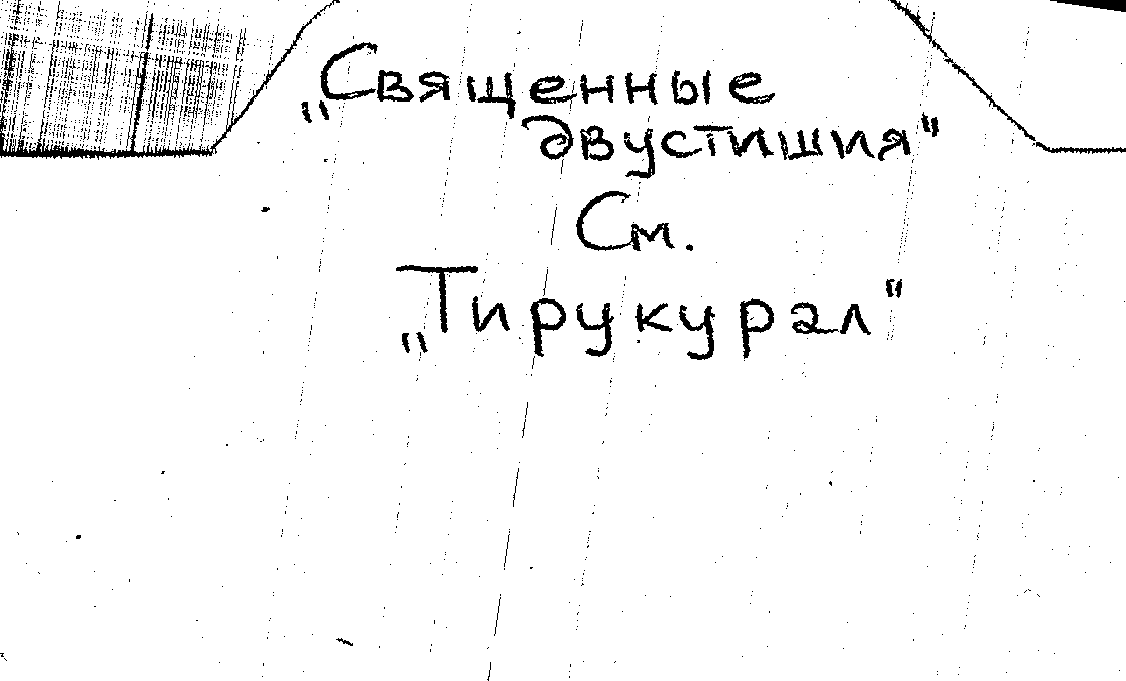 „Священные
двустишия"
См.
„Тирукурал"